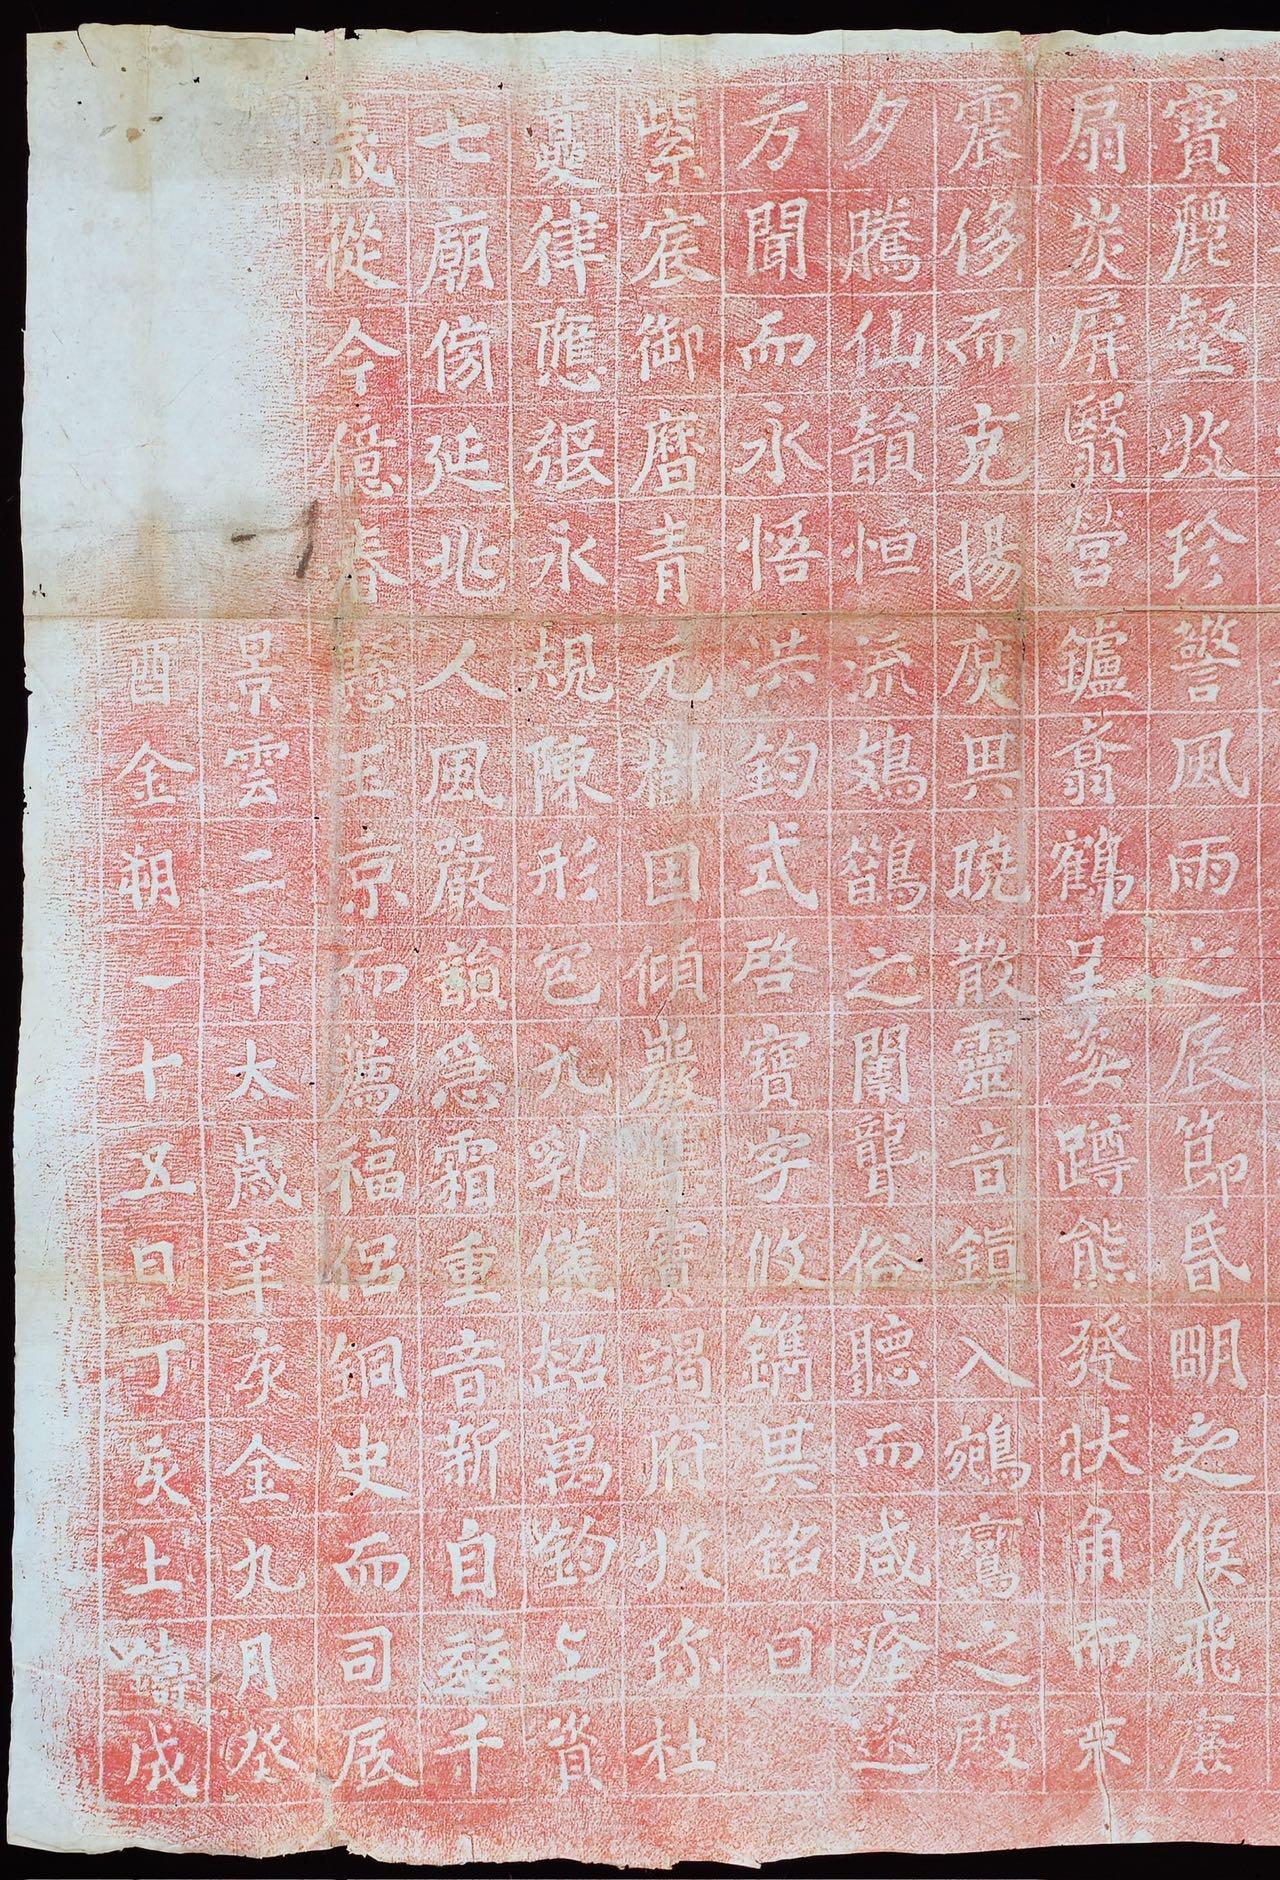 寶麗壑收珍警風雨之辰節昏明之候飛廉
扇炭屏翳營鑪翥鶴呈姿蹲熊發狀角而衆
震侈而克揚庶其曉散靈音鎮入鵷鸞之殿
夕騰仙韻恒流鳷鵲之闈聾俗聽而咸痊迷
方聞而永悟洪鈞式啓寶字攸鐫其銘曰
紫宸御曆青元樹因傾巖集寶竭府收珎杜
夔律應張永規陳形包九乳儀超萬鈞上資
七廟傍延兆人風嚴韻急霜重音新自茲千
歲從今億春懸玉京而薦福侶銅史而司辰
景雲二年太歲辛亥金九月癸
酉金朔一十五日丁亥土鑄成